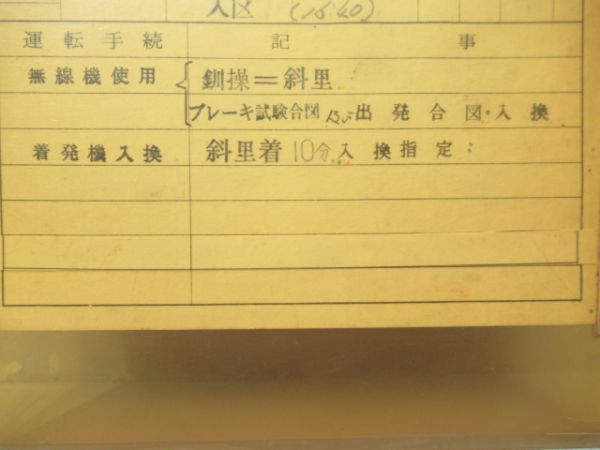 入区 (18.40)
運転手続 記事
無線機使用 { 釧操=斜里
ブレーキ試験合図及び出発合図・入換
着発機入換 斜里着10分入換指定